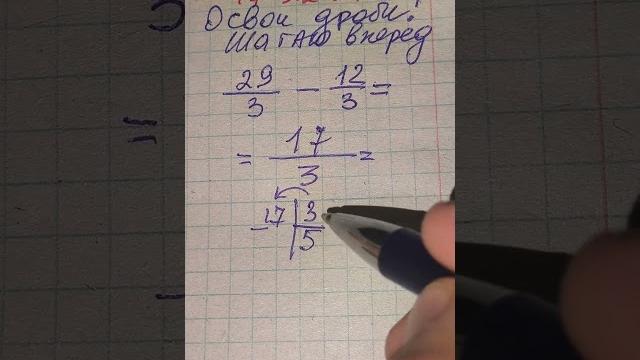 Освои дроби!
Шагаю вперед
29/3 - 12/3 =
= 17/3 =
- 17 | 3
5